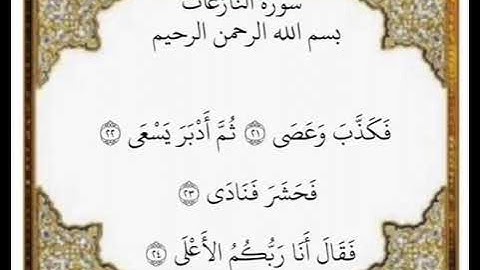 سورة النازعات
بسم الله الرحمن الرحيم
فَكَذَّبَ وَعَصَى ﴿٢١﴾ ثُمَّ أَدْبَرَ يَسْعَى ﴿٢٢﴾
فَحَشَرَ فَنَادَى ﴿٢٣﴾
فَقَالَ أَنَا رَبُّكُمُ الأَعْلَى ﴿٢٤﴾